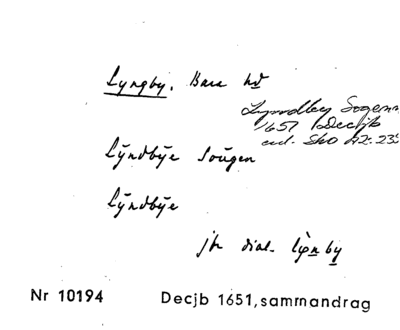 Lyngby, Bara hd
Lyndbey Sogenn
1657 Decjb
enl. Sko A2:23
Lÿndbÿe Sougen
Lÿndbÿe
jfr dial. lynby
Nr 10194 Decjb 1651, sammandrag